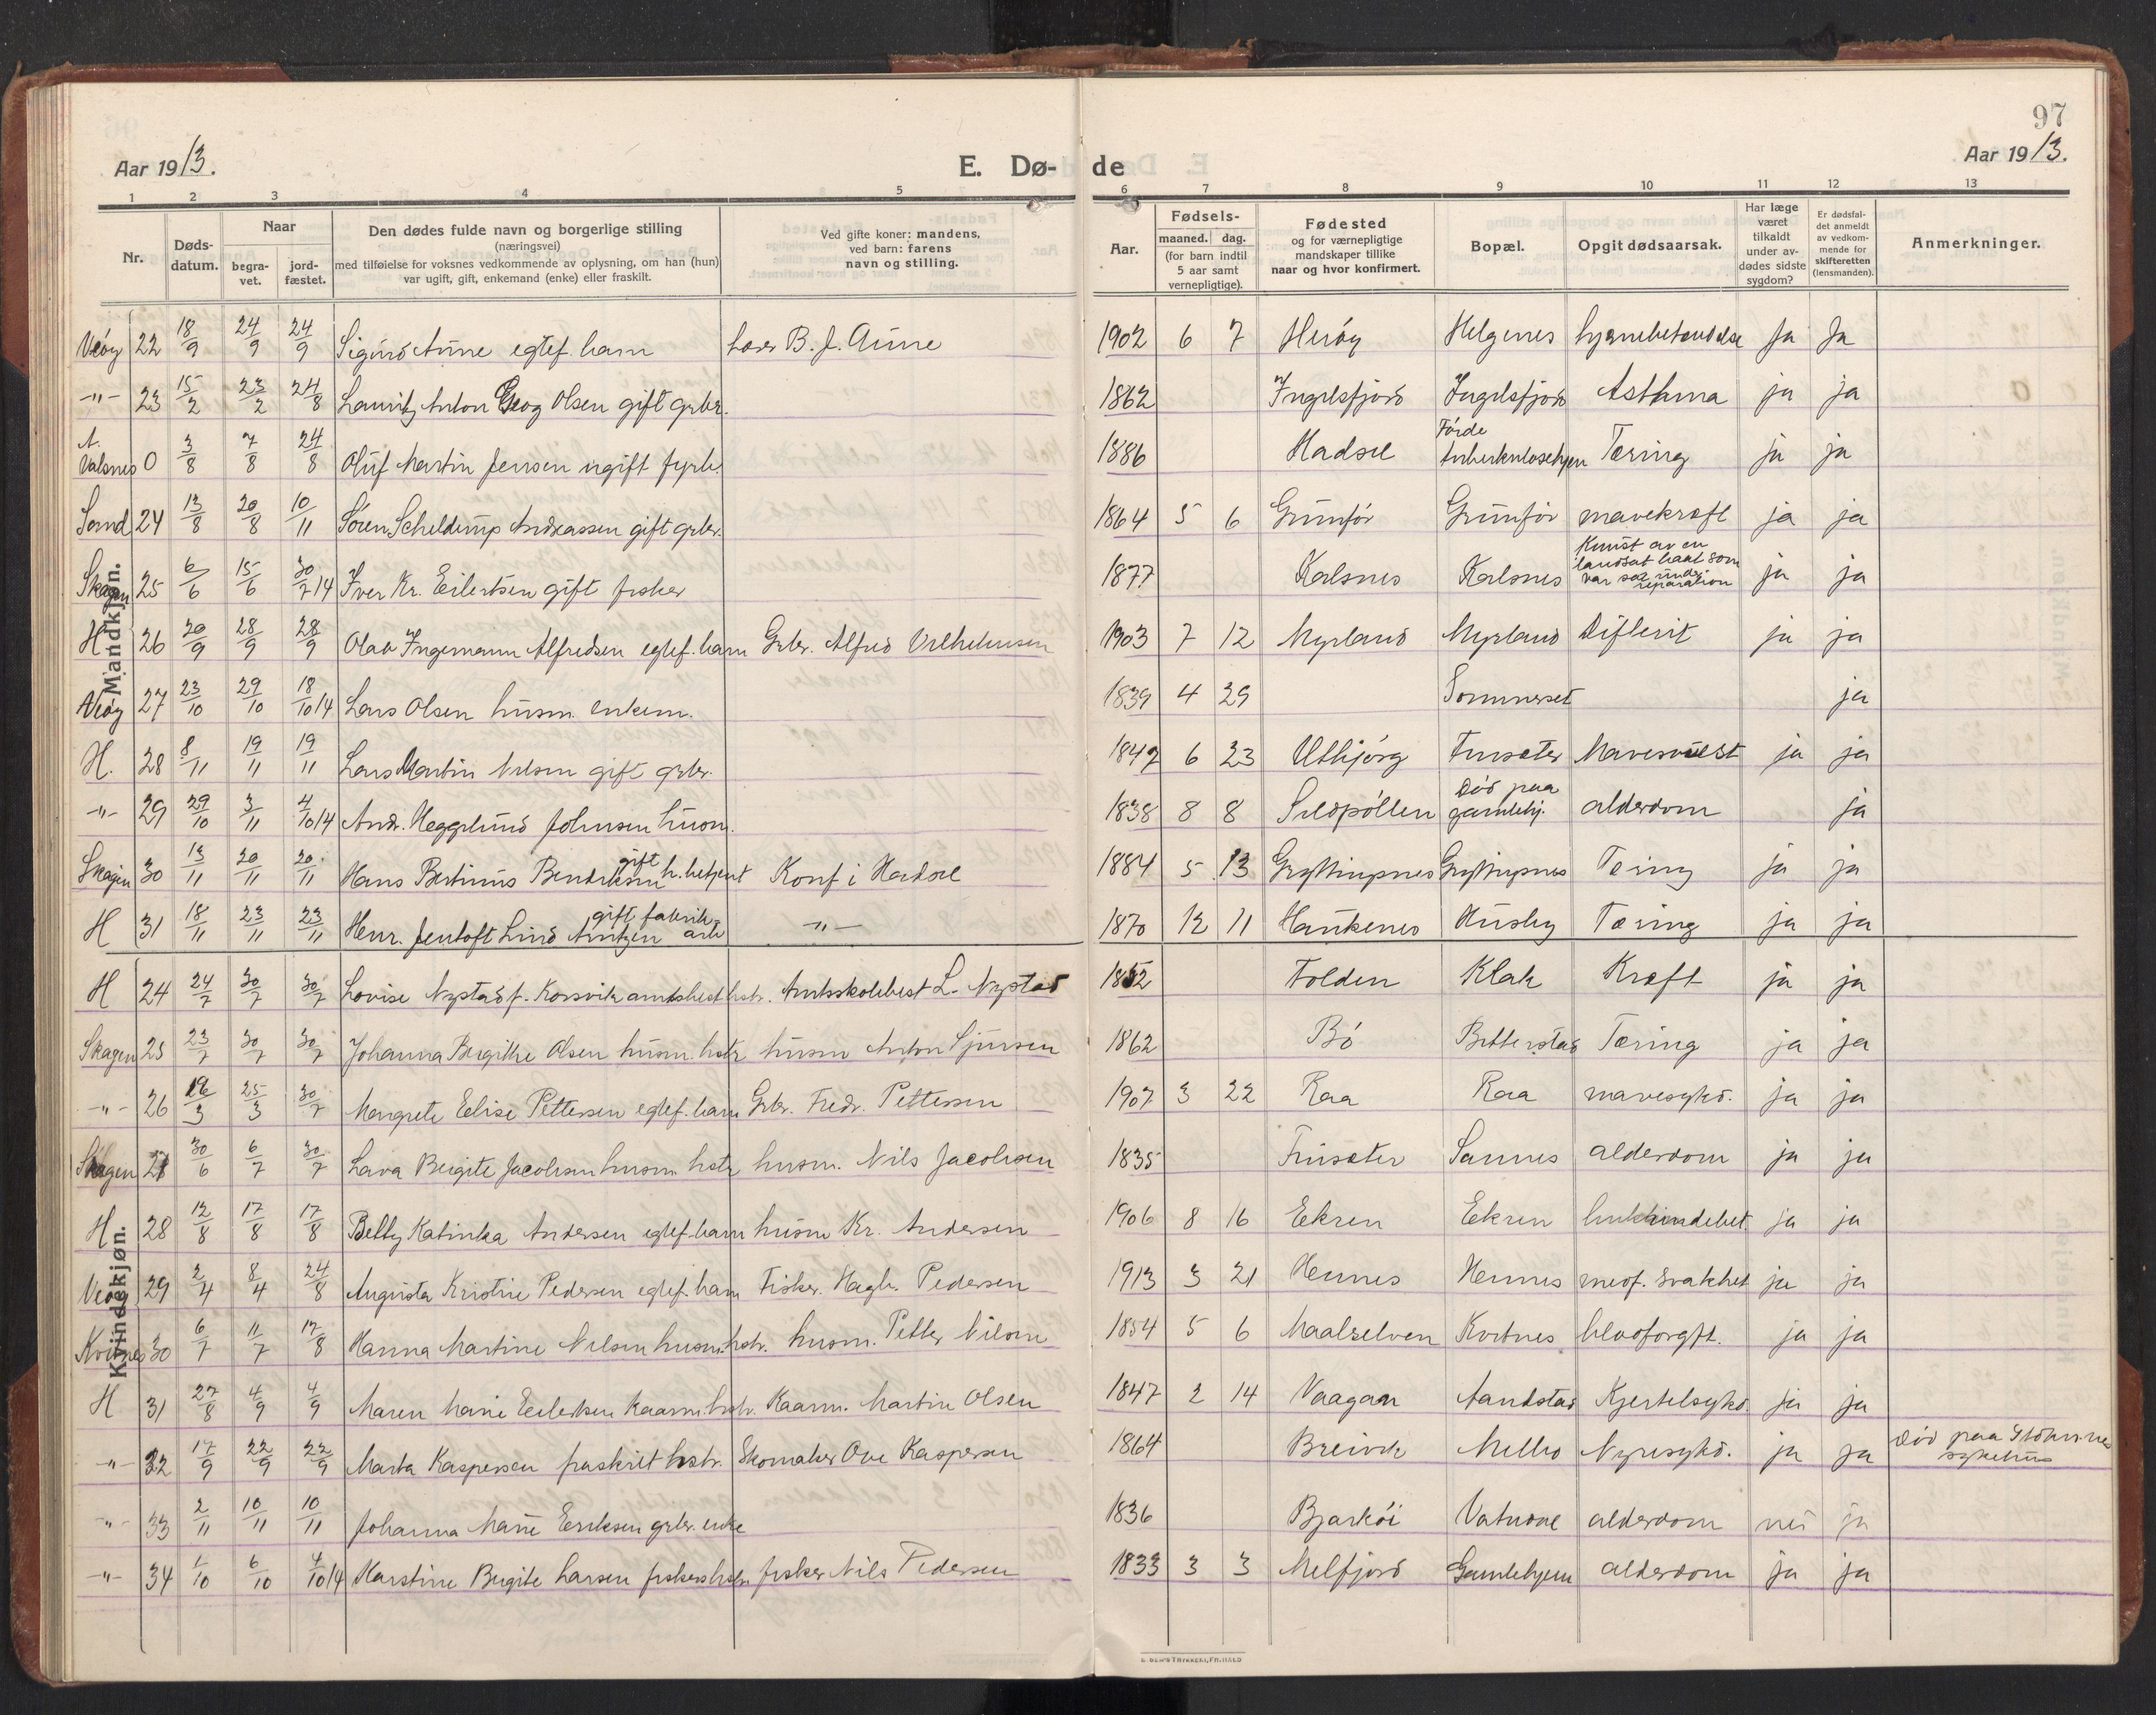 97
Aar 1913.
E. Dø-de
Aar 1913.
1 2 3 4 5 6 7 8 9 10 11 12 13
Nr.
Døds-datum.
Naar
begra-vet.
jord-fæstet.
Den dødes fulde navn og borgerlige stilling
(næringsvei)
med tilføielse for voksnes vedkommende av oplysning, om han (hun)
var ugift, gift, enkemand (enke) eller fraskilt.
Ved gifte koner: mandens,
ved barn: farens
navn og stilling.
Aar.
Fødsels-
maaned. dag.
(for barn indtil
5 aar samt
vernepligtige).
Fødested
og for værnepligtige
mandskaper tillike
naar og hvor konfirmert.
Bopæl.
Opgit dødsaarsak.
Har læge
været
tilkaldt
under av-
dødes sidste
sygdom?
Er dødsfal-
det anmeldt
av vedkom-
mende for
skifteretten
(lensmanden).
Anmerkninger.
Mandkjøn.
22 18/9 24/9 24/9 Sigurd Aune egtef. barn B. J. Aune 1902 6 7 Herøy Helgenes Ja Ja
-"- 23 15/2 23/2 24/8 Lauritz Anton Georg Olsen gift grbr. 1862 Ingelsfjord Ingelsfjord Asthma ja ja
Valsnes 0 3/8 7/8 24/8 Oluf Martin Jensen ugift 1886 Hadsel Førde Tuberkulosehjem Tæring ja ja
Sand 24 13/8 20/8 10/11 Søren Scheldrup Andreassen gift grbr. 1864 5 6 Grunfør Grunfør mavekræft ja ja
Skagen 25 6/6 15/6 30/7 14 Iver Kr. Eilertsen gift fisker 1877 Kalsnes Kalsnes Knust av en landsat baat som var under reparation ja ja
H 26 20/9 28/9 28/9 Olav Ingemann Alfredsen egtef. barn Grbr. Alfred Vilhelmsen 1903 7 12 Myrland Myrland Difterit ja ja
27 23/10 29/10 18/10 14 Lars Olsen husm. enkem. 1839 4 29 Sommerset ja
H. 28 8/11 19/11 19/11 Lars Martin Nilsen gift grbr. 1847 6 23 Utbjørg Fursæter Mavesvulst ja ja
-"- 29 29/10 3/11 4/10 14 Andr. Heggelund Johnsen husm. 1838 8 8 Sildpollen Død paa gamlehj. alderdom ja
Skagen 30 13/11 20/11 20/11 Hans Bertinus Bendriksen gift h. betjent Konf i Hadsel 1884 5 13 Gryttingnes Gryttingnes Tæring ja ja
H 31 18/11 23/11 23/11 Henr. Jentoft Lind Arntzen gift fabrik-arb -"- 1870 12 11 Haukenes Husby Tæring ja ja
Kvindekjøn.
H 24 24/7 30/7 30/7 Lovise Nystad f. Korsvik Amtsskolebest L. Nystad 1852 Folden Klak Kræft ja ja
Skagen 25 23/7 30/7 30/7 Johanna Birgitte Olsen husm. hstr husm Anton Sjursen 1862 Bø Bitterstad Tæring ja ja
-"- 26 16/3 25/3 30/7 Margrete Elise Pettersen egtef. barn Grbr. Fredr. Pettersen 1907 3 22 Raa Raa mavesykd. ja ja
Skagen 27 30/6 6/7 30/7 Lava Birgite Jacobsen husm hstr husm. Nils Jacobsen 1835 Fursæter Sannes alderdom ja ja
H. 28 12/8 17/8 17/8 Betty Katinka Andersen egtef. barn husm Kr. Andersen 1906 8 16 Ekren Ekren ja ja
29 2/4 8/4 24/8 Augusta Kristine Pedersen egtef. barn Fisker. Hagb. Pedersen 1913 3 21 Hennes Hennes medf. svakhet ja ja
Kvitnes 30 6/7 11/7 17/8 Hanna Martine Nilsen husm. hstr. husm. Petter Nilsen 1854 5 6 Maalselven Kvitnes blodforgft. ja ja
H 31 27/8 4/9 4/9 Maren Marie Eilertsen Kaarm. hstr. Kaarm. Martin Olsen 1847 2 14 Vaagan Sandstad Kjertelsykd. ja ja
-"- 32 17/9 22/9 22/9 Marta Kaspersen fraskilt hstr. Skomaker Ove Kaspersen 1864 Breivik Melbo Nyresykd. ja ja Død paa Stokmarknes sykehus
-"- 33 2/11 10/11 10/11 Johanna Marie Eriksen grbr. enke 1836 Bjarkøi Vatndal alderdom nei ja
-"- 34 1/10 6/10 4/10 14 Karstine Birgite Larsen fiskers hstr. fisker Nils Pedersen 1833 3 3 Melfjord Gamlehjem alderdom ja ja